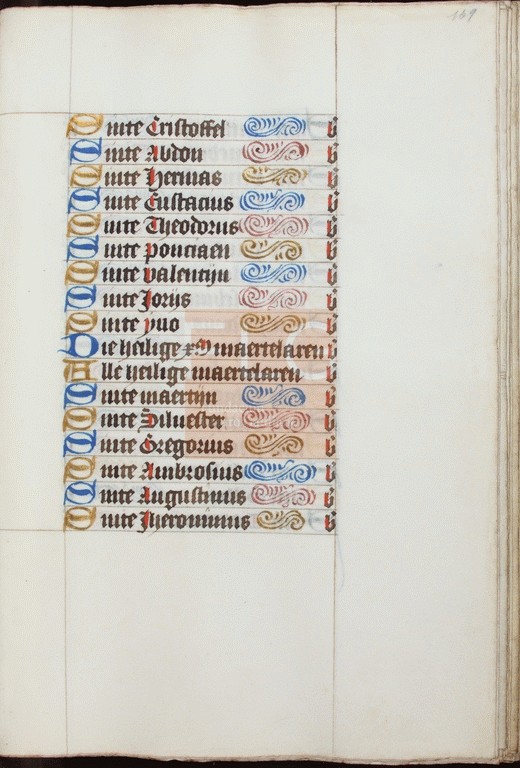 169
Sinte Cristoffel b
Sinte Abdon b
Sinte Hermas b
Sinte Eustacius b
Sinte Theodorus b
Sinte ponciaen b
Sinte valentijn b
Sinte Jorijs b
Sinte yuo b
Die heilige xM maertelaren b
Alle heilige maertelaren b
Sinte maertijn b
Sinte Siluester b
Sinte Gregorius b
Sinte Ambrosius b
Sinte Augustinus b
Sinte Jheronimus b